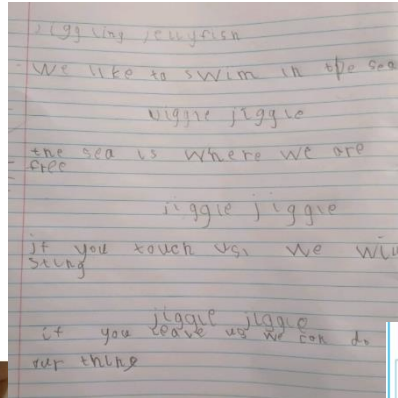 jiggling jellyfish
We like to swim in the sea
wiggle jiggle
the sea is where we are
free
jiggle jiggle
if you touch us, we will
sting
jiggle jiggle
if you leave us we can do
our thing